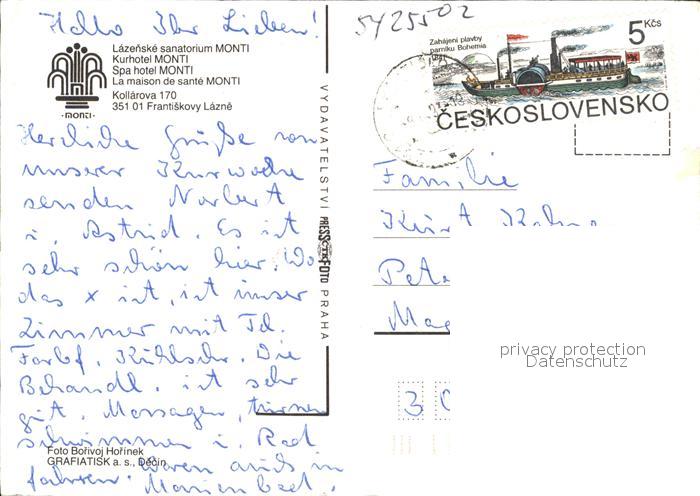 Hallo Ihr Lieben!
Lázeňské sanatorium MONTI
Kurhotel MONTI
Spa hotel MONTI
La maison de santé MONTI
Kollárova 170
351 01 Františkovy Lázně
·MONTI·
Herzliche Grüße von
unserer Kurwoche
senden Norbert
u. Astrid. Es ist
sehr schön hier. Wo
das x ist, ist unser
Zimmer mit Tel.
Farbf. Kühlschr. Die
Behandl. ist sehr
gut. Massagen, turnen
schwimmen u. Rad
fahren. Waren auch in
Marienbad.
Foto Bořivoj Hořínek
GRAFIATISK a. s., Děčín
VYDAVATELSTVÍ PRESSFOTO PRAHA
5425502
Zahájení plavby
parníku Bohemia
1841
5 Kčs
ČESKOSLOVENSKO
Familie
Kurt
Pete
Mag
3
privacy protection
Datenschutz